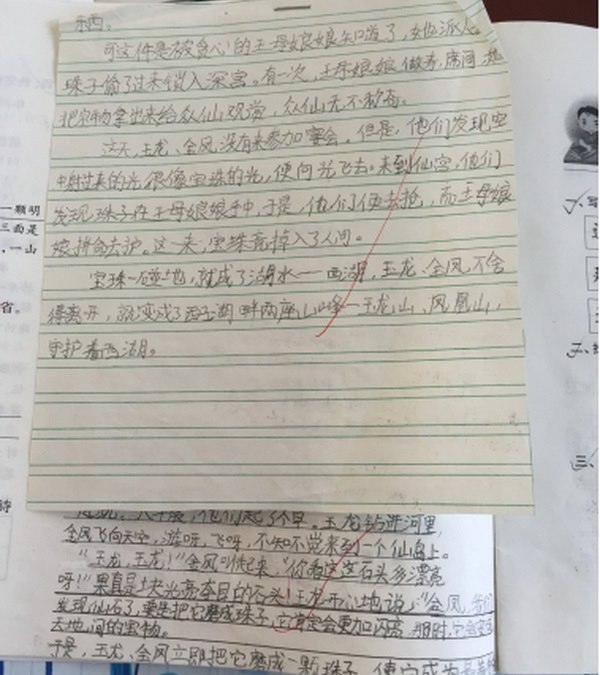 东西。
可这件是被贪心的王母娘娘知道了,她派人
珠子偷了过来锁入深宫。有一次,王母娘娘做寿,席间,她
把宝物拿出来给众仙观赏,众仙无不称奇。
这天,玉龙、金凤没有来参加宴会。但是,他们发现空
中射过来的光很像宝珠的光,便向光飞去。来到仙宫,他们
发现珠子在王母娘娘手中,于是,他们便去抢,而王母娘
娘拼命去护。这一来,宝珠竟掉入了人间。
宝珠一碰地,就成了湖水——西湖,玉龙、金凤不舍
得离开,就变成了西湖畔两座山峰—玉龙山、凤凰山,
守护着西湖。
他们起了个早。玉龙钻进河里,
金凤飞向天空,游呀,飞呀,不知不觉来到一个仙岛上。
“玉龙,玉龙!”金凤叫起来,“你看这这石头多漂亮
呀!”果真是块光亮夺目的石头!玉龙开心地说:“金凤,我们
发现仙石了,要是把它磨成珠子,它肯定会更加闪亮,那时,它会变成
天地间的宝物。
于是,玉龙、金凤立即把它磨成一颗珠子,使它成为
一颗明
三面是
,一山
省。
诗
三、